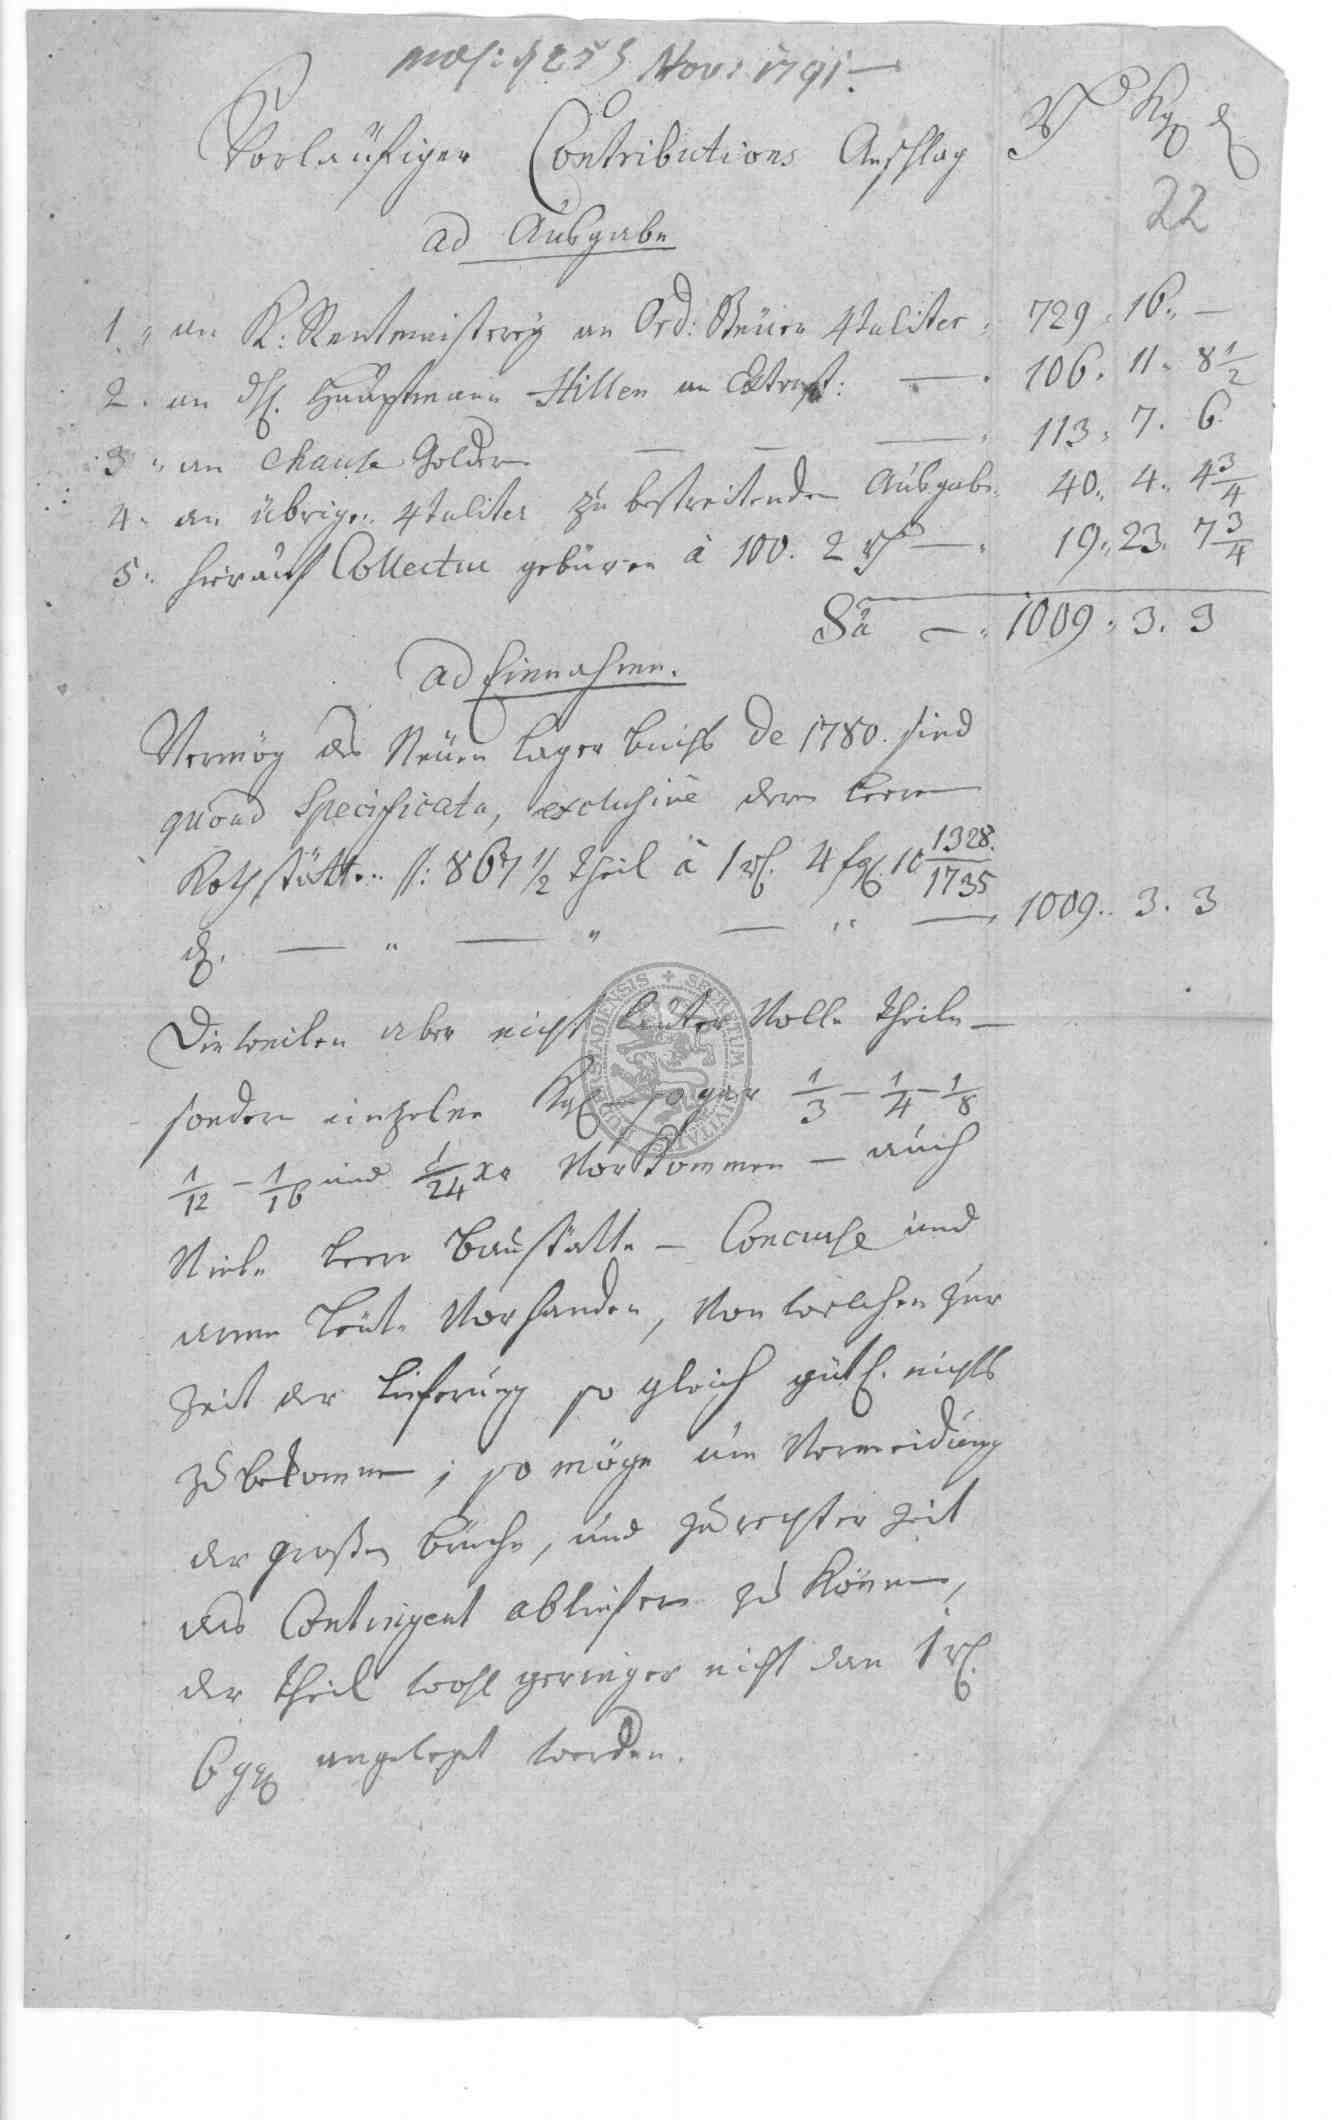 Nov: 1791.
Vorläufiger Contributions Anschlag
22
ad Ausgabe
1. an K: Rentmeisterey an Ord: Steüer 4taliter 729. 16. —
2. an H. Hauptmann Hillen an — 106. 11. 8 1/2
3. an Chause Gelder — — — 113. 7. 6.
4. an übrige 4taliter zu bestreitenden Ausgabe 40. 4. 4 3/4
5. hierauf Collectur gebüren à 100. 2 — 19. 23. 7 3/4
Sa — 1009. 3. 3
ad Einnahme.
Vermög des Neüen Lager buchs de 1780. sind
quoad Specificata, exclusive deren leeren
Kothstätte /: 867 1/2 theil à 1 rl. 4 10 1328/1735
— „ — „ — „ — 1009. 3. 3
Dieweilen aber nicht lauter Volle theile —
sondern einzelne sogar 1/3 — 1/4 — 1/8
1/12 — 1/16 und 1/24 Vorkommen — auch
Viele leere baustätte — Concurse und
arme leüte Vorhanden, Von welchen zur
Zeit der lieferung so gleich gütl. nichts
zu bekommen; so möge um Vermeidung
der großen brüche, und zu rechter Zeit
das Contingent abliefern zu können,
der theil wohl geringer nicht dan 1 rl.
6 angelegt werden.
SECRETUM CIVITATIS